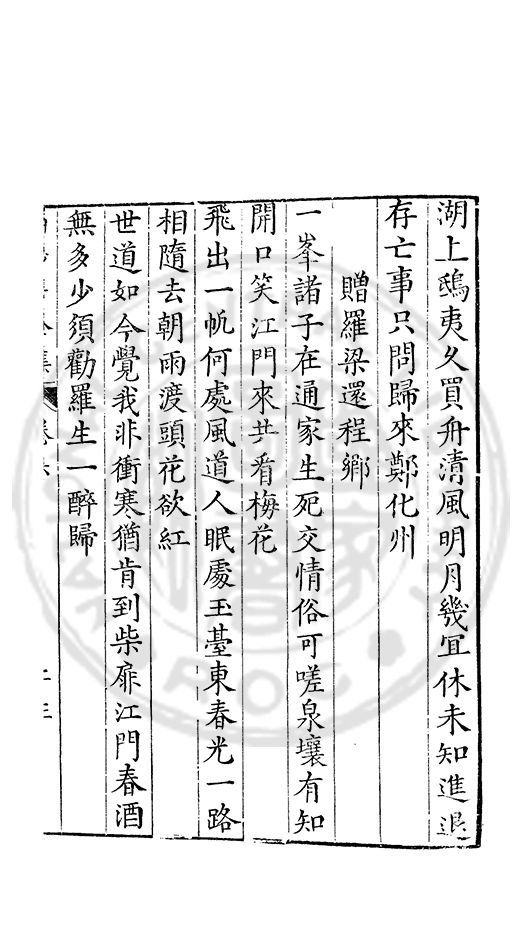 湖上鴟夷久買舟清風明月幾宜休未知進退
存亡事只問歸來鄭化州
贈羅梁還程鄉
一峯諸子在通家生死交情俗可嗟泉壤有知
開口笑江門來共看梅花
飛出一帆何處風道人眠處玉臺東春光一路
相隨去朝雨渡頭花欲紅
世道如今覺我非衝寒猶肯到柴扉江門春酒
無多少須勸羅生一醉歸